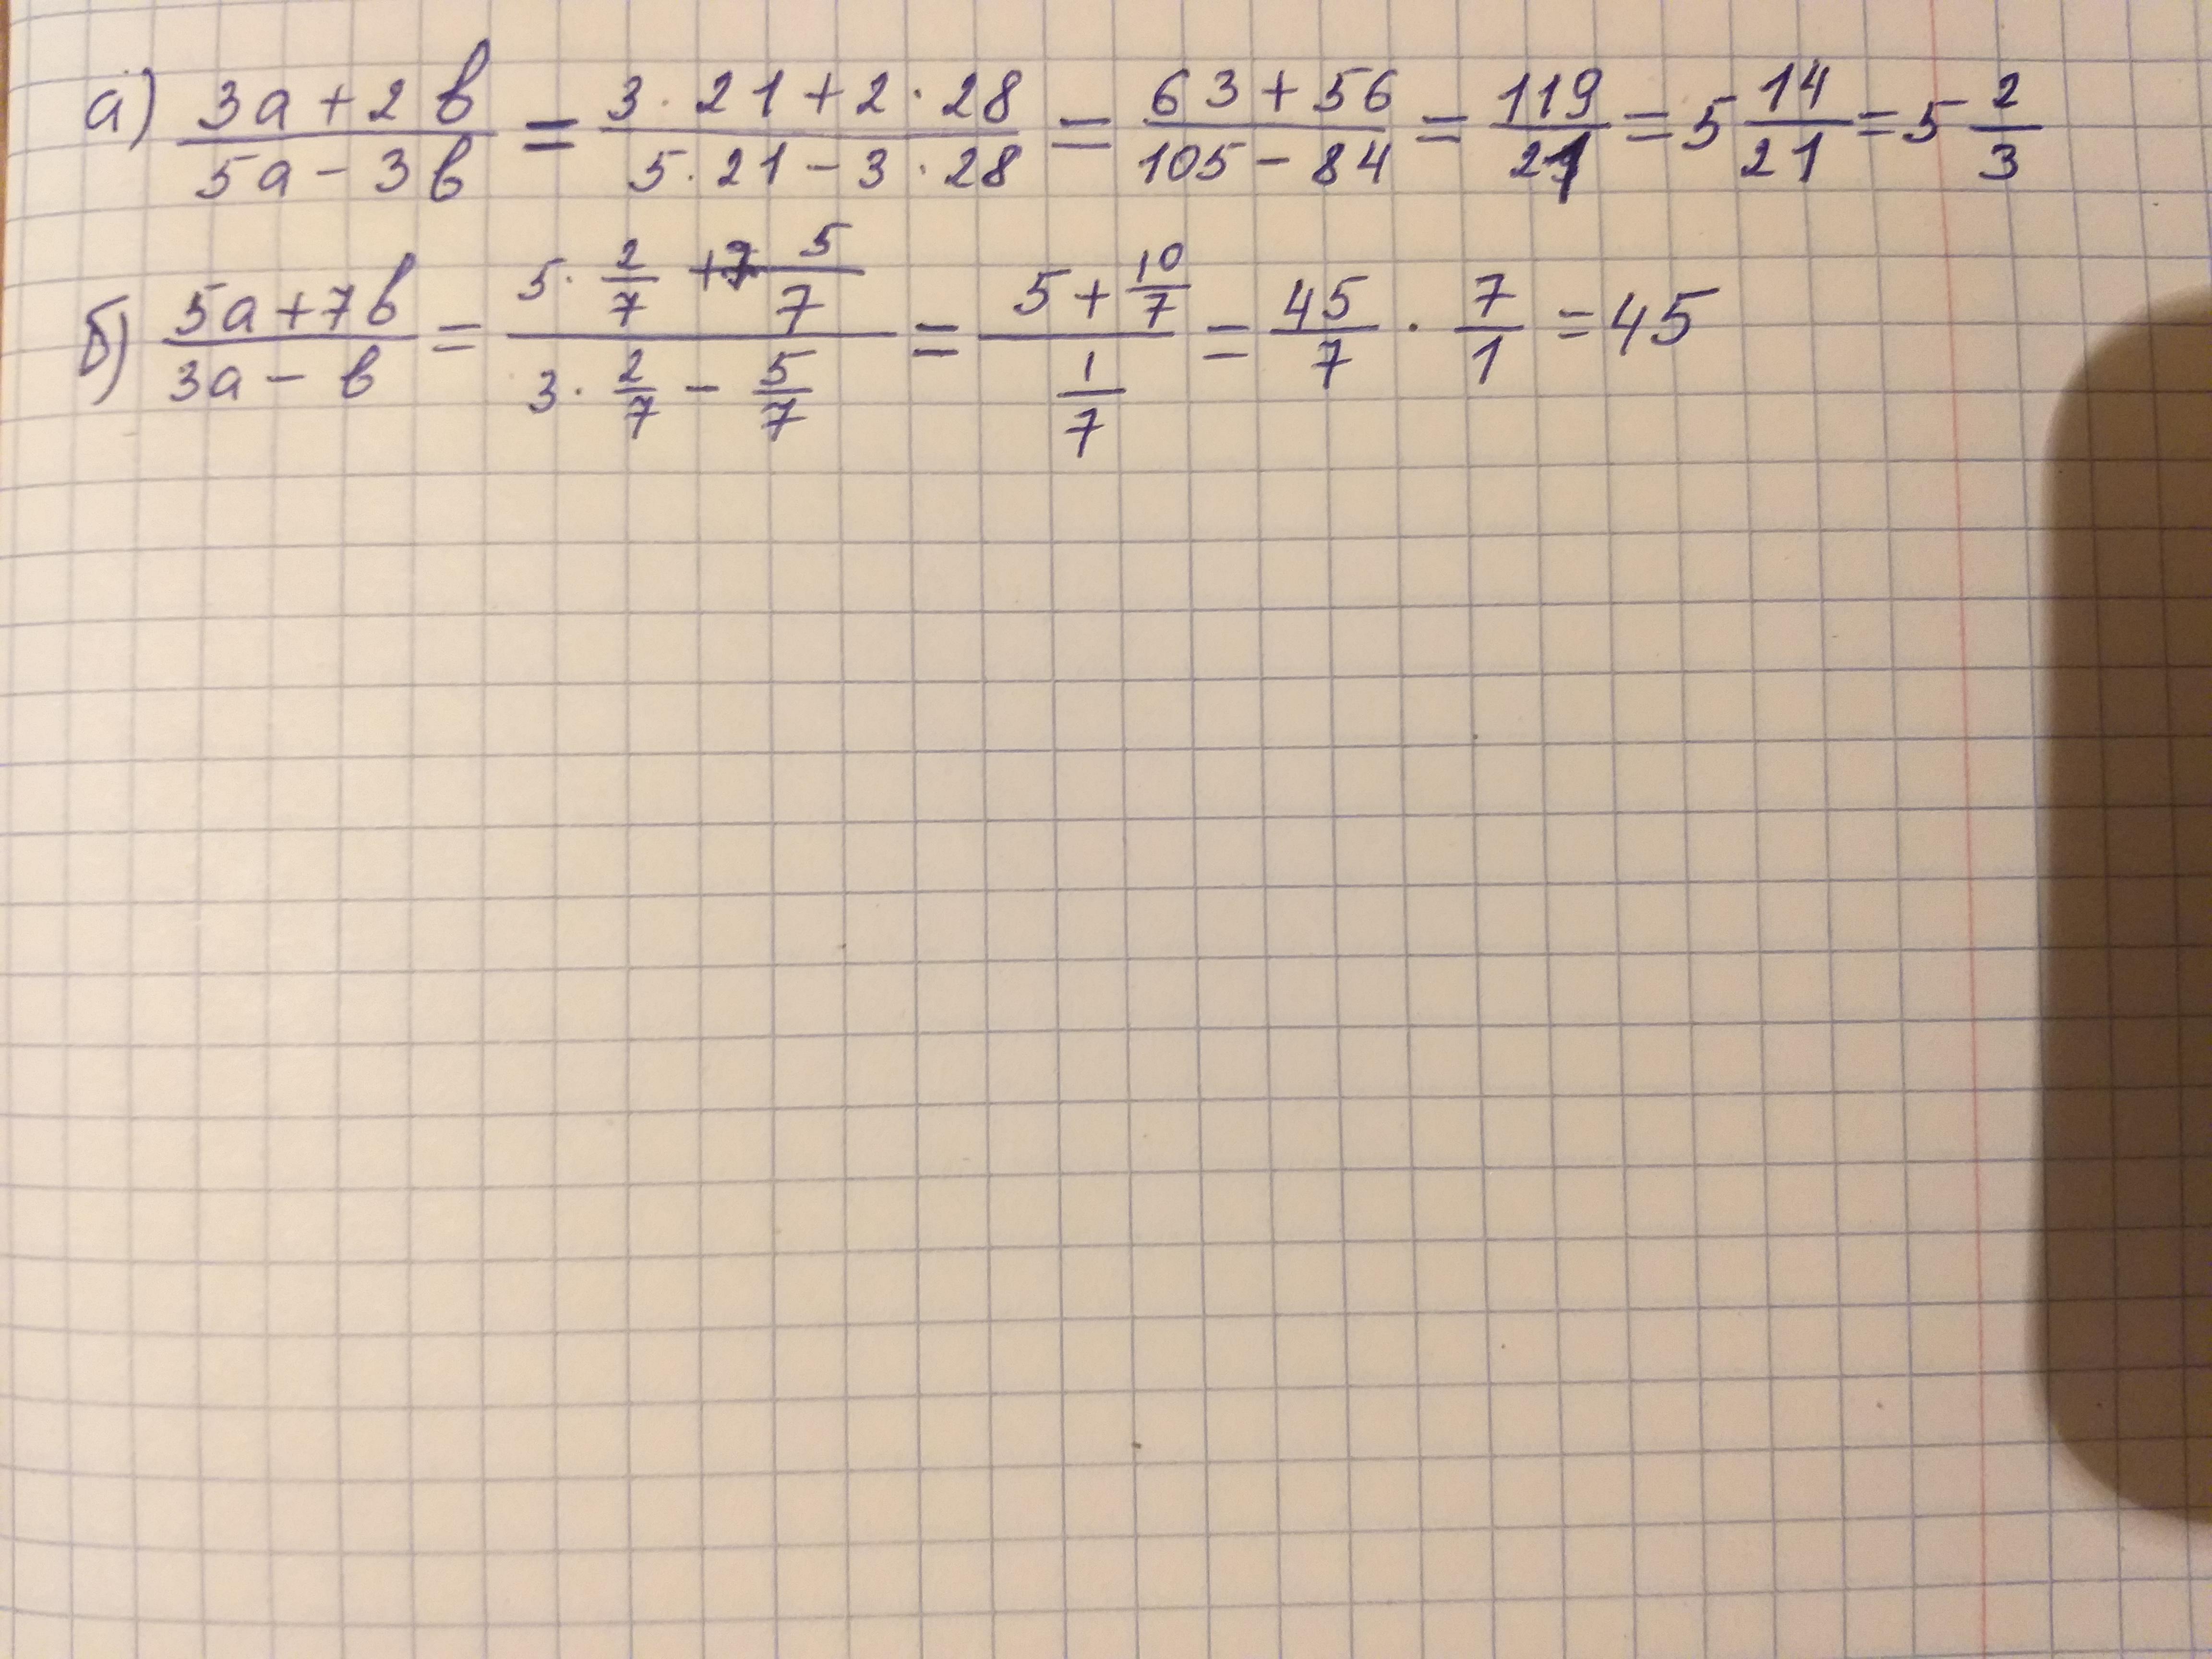 а) (3a + 2b)/(5a - 3b) = (3 · 21 + 2 · 28)/(5 · 21 - 3 · 28) = (63 + 56)/(105 - 84) = 119/21 = 5 14/21 = 5 2/3
б) (5a + 7b)/(3a - b) = (5 · 2/7 + 7 5/7)/(3 · 2/7 - 5/7) = (5 + 10/7)/(1/7) = 45/7 · 7/1 = 45